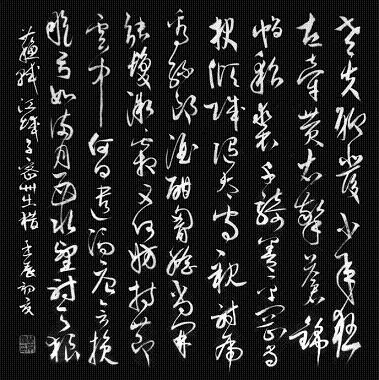 老夫聊發少年狂
左牽黃右擎蒼錦
帽貂裘千騎卷平岡為
報傾城隨太守親射虎
看孫郎酒酣胸膽尚開
張鬢微霜又何妨持節
雲中何日遣馮唐會挽
雕弓如滿月西北望射天狼
蘇軾江城子密州出獵 壬辰初夏